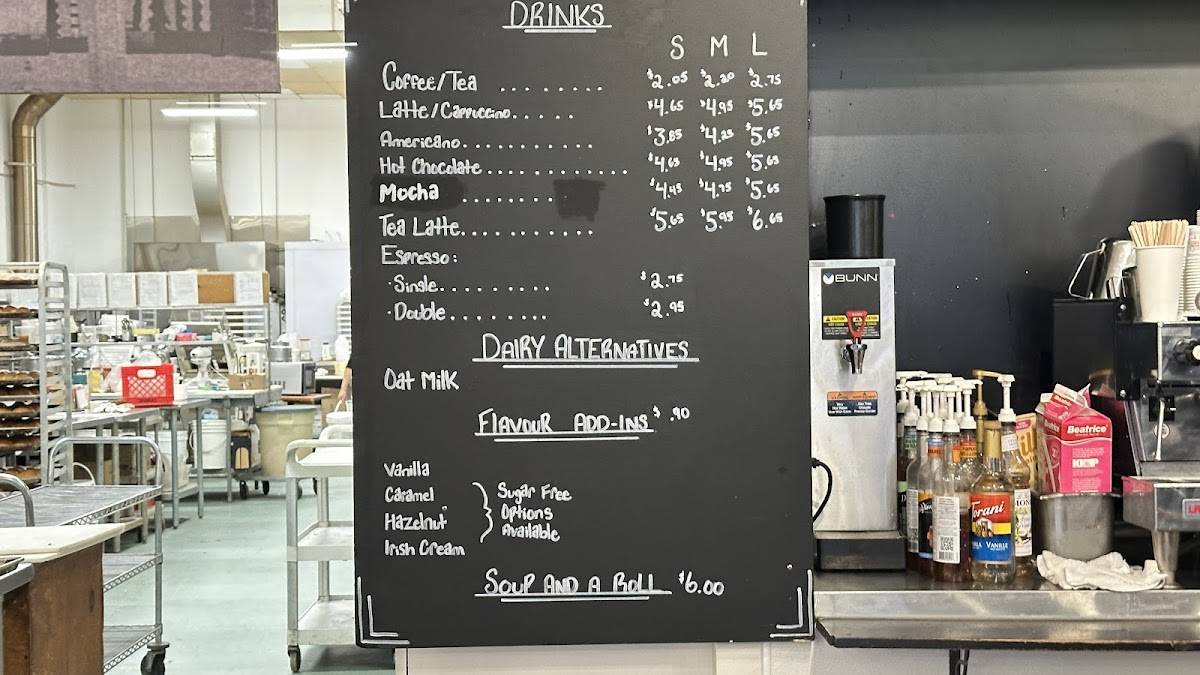 DRINKS
S M L
Coffee/Tea ........ $2.05 $2.20 $2.75
Latte/Cappuccino..... $4.65 $4.95 $5.65
Americano........... $3.85 $4.25 $5.65
Hot Chocolate............ $4.65 $4.95 $5.65
Mocha ....... $4.45 $4.75 $5.65
Tea Latte........... $5.65 $5.95 $6.65
Espresso:
·Single......... $2.75
·Double........ $2.95
DAIRY ALTERNATIVES
Oat Milk
FLAVOUR ADD-INS $.90
Vanilla
Caramel
Hazelnut
Irish Cream
Sugar Free
Options
Available
SOUP AND A ROLL $6.00
BUNN
CAUTION
Beatrice
Torani
VANILLE